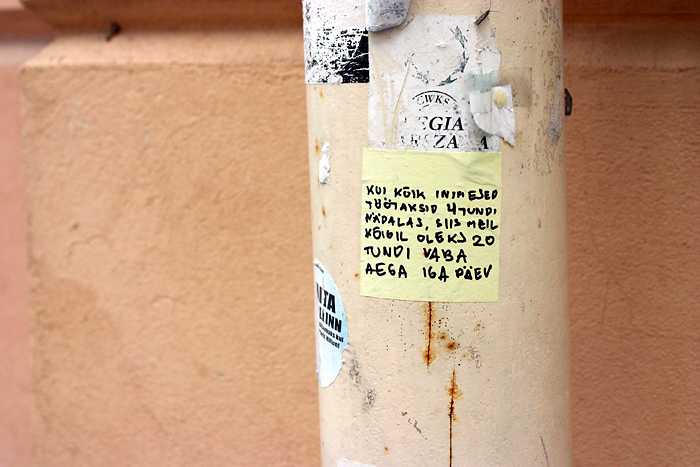 CWKS
EGIA
KUI KÕIK INIMESED
TÖÖTAKSID 4 TUNDI
NÄDALAS, SIIS MEIL
KÕIGIL OLEKS 20
TUNDI VABA
AEGA IGA PÄEV
INN